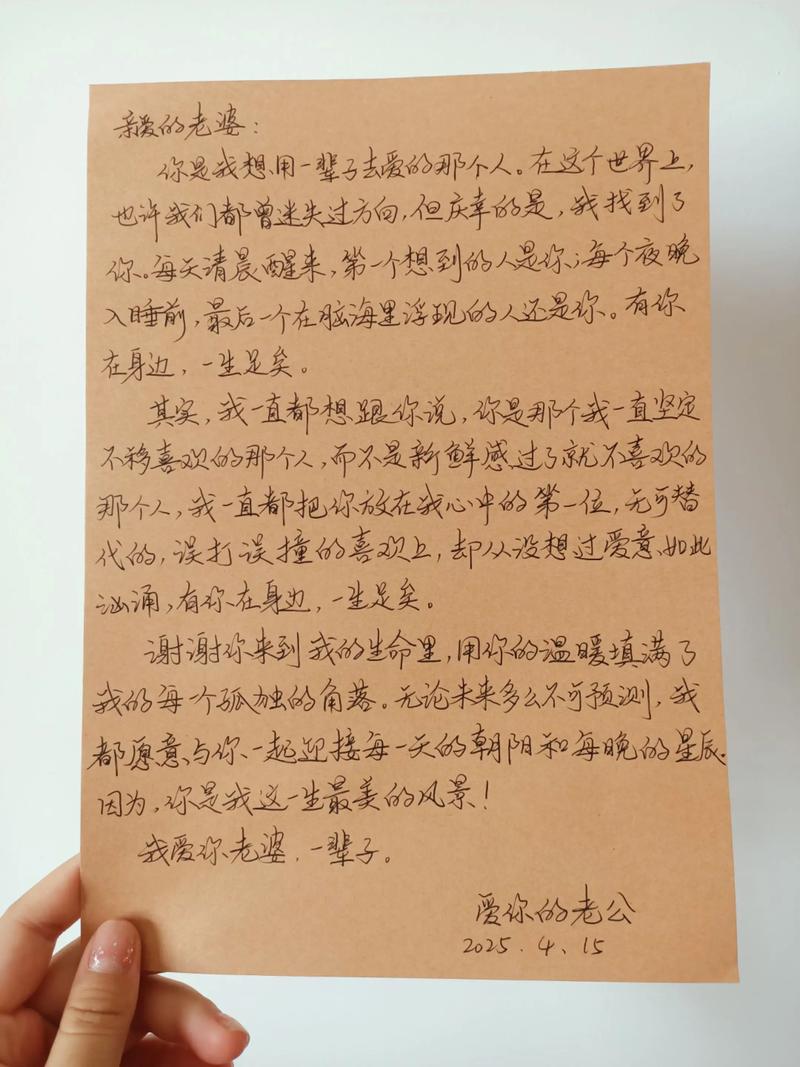 亲爱的老婆：
你是我想用一辈子去爱的那个人。在这个世界上，
也许我们都曾迷失过方向，但庆幸的是，我找到了
你。每天清晨醒来，第一个想到的人是你；每个夜晚
入睡前，最后一个在脑海里浮现的人还是你。有你
在身边，一生足矣。
其实，我一直都想跟你说，你是那个我一直坚定
不移喜欢的那个人，而不是新鲜感过了就不喜欢的
那个人，我一直都把你放在我心中的第一位，无可替
代的，误打误撞的喜欢上，却从没想过爱意如此
汹涌，有你在身边，一生足矣。
谢谢你来到我的生命里，用你的温暖填满了
我的每一个孤独的角落。无论未来多么不可预测，我
都愿意与你一起迎接每一天的朝阳和每晚的星辰.
因为，你是我这一生最美的风景！
我爱你老婆，一辈子。
爱你的老公
2025.4.15